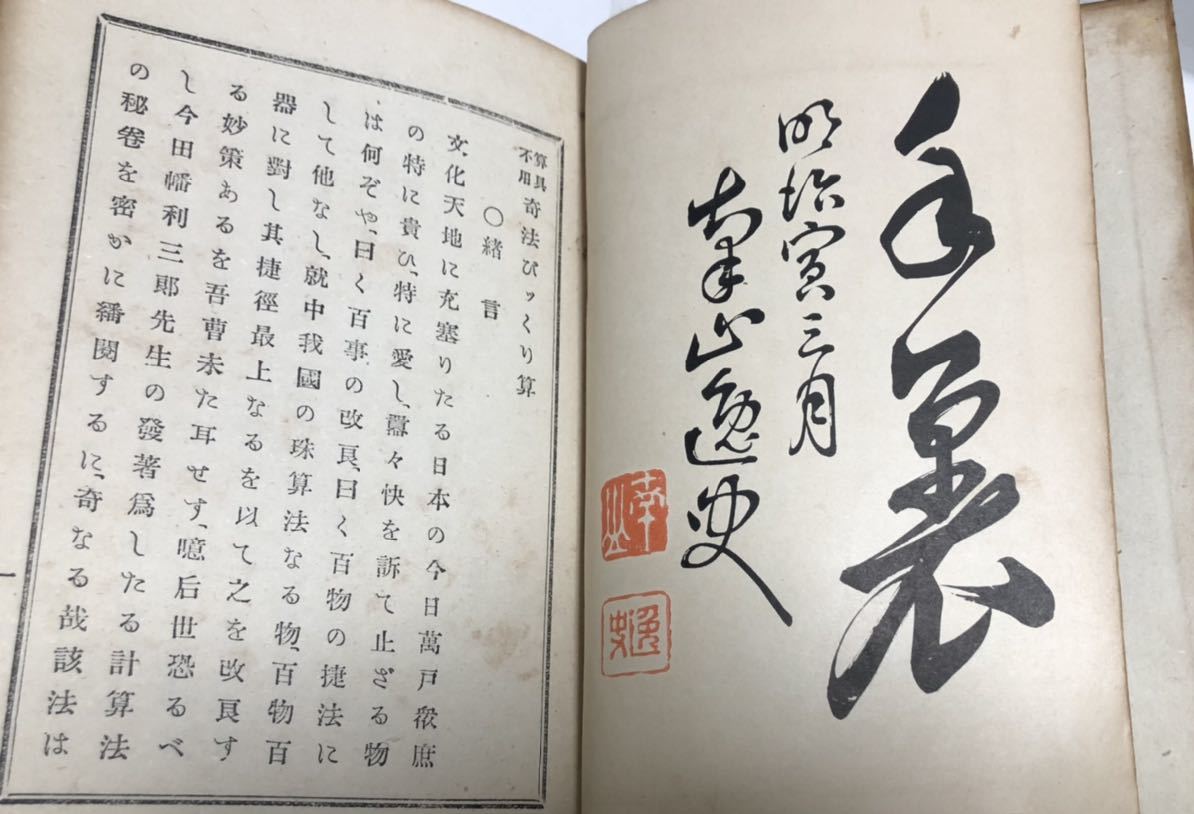 手裏
明治寅三月
南山逸史
南山
逸史
算具
不用
奇法びッくり算
〇緒言
文化天地に充塞りたる日本の今日萬戸衆庶
の特に貴ひ、特に愛し、囂々快を訴て止ざる物
は何ぞや、曰く百事の改良、曰く百物の捷法に
して他なし、就中我國の珠算法なる物、百物百
器に對し其捷徑最上なるを以て之を改良す
る妙策あるを吾曹未た耳せす、噫后世恐るべ
し今田幡利三郎先生の發著爲したる計算法
の秘卷を密かに繙閲するに、奇なる哉該法は
一